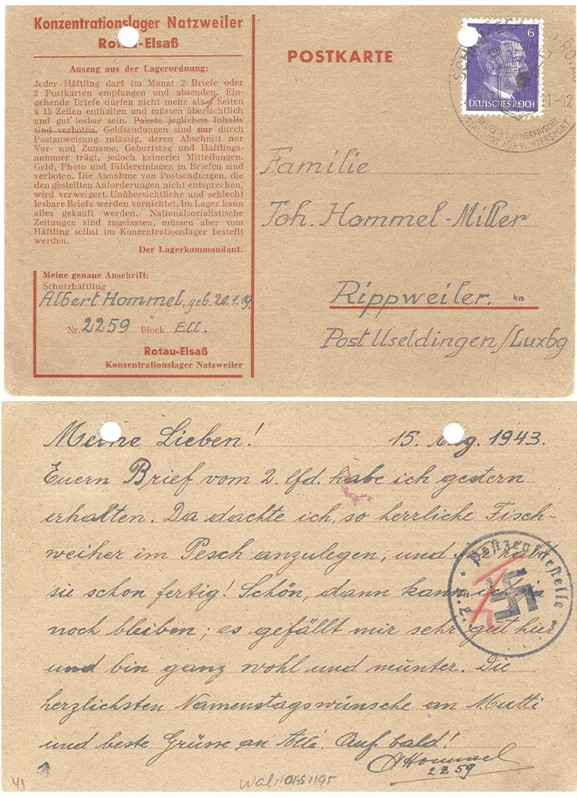 Konzentrationslager Natzweiler
Rotau-Elsaß
Auszug aus der Lagerordnung:
Jeder Häftling darf im Monat 2 Briefe oder
2 Postkarten empfangen und absenden. Ein-
gehende Briefe dürfen nicht mehr als 4 Seiten
à 15 Zeilen enthalten und müssen übersichtlich
und gut lesbar sein. Pakete jeglichen Inhalts
sind verboten. Geldsendungen sind nur durch
Postanweisung zulässig, deren Abschnitt nur
Vor- und Zuname, Geburtstag und Häftlings-
nummer trägt, jedoch keinerlei Mitteilungen.
Geld, Photo und Bildereinlagen in Briefen sind
verboten. Die Annahme von Postsendungen, die
den gestellten Anforderungen nicht entsprechen,
wird verweigert. Unübersichtliche und schlecht
lesbare Briefe werden vernichtet. Im Lager kann
alles gekauft werden. Nationalsozialistische
Zeitungen sind zugelassen, müssen aber vom
Häftling selbst im Konzentrationslager bestellt
werden.
Der Lagerkommandant.
Meine genaue Anschrift:
Schutzhäftling
Albert Hommel, geb. 20.1.19.
Nr. 2259 Block Ell.
Rotau-Elsaß
Konzentrationslager Natzweiler
POSTKARTE
6
DEUTSCHES REICH
Familie
Joh. Hommel-Miller
Rippweiler.
Post Useldingen/Luxbg
Meine Lieben! 15. Aug. 1943.
Euern Brief vom 2. lfd. habe ich gestern
erhalten. Da dachte ich, so herrliche Fisch-
weiher im Pesch anzulegen, und
sie schon fertig! Schön, dann kann ich
noch bleiben; es gefällt mir sehr gut hier
und bin ganz wohl und munter. Die
herzlichsten Namenstagswünsche an Mutti
und beste Grüsse an Alle. Auf bald!
AHommel
2259
Postzensurstelle